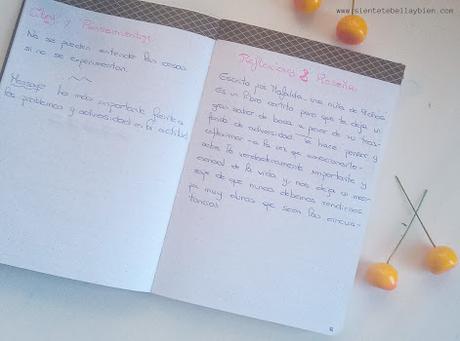 www.sientetebellaybien.com
Citas y Pensamientos
No se pueden entender las cosas
si no se experimentan.
Mensaje: lo más importante frente a
los problemas y adversidad es la actitud
Reflexiones & Reseña
Escrito por Mafalda, una niña de 9 años
Es un libro cortito pero que te deja un
gran sabor de boca a pesar de su tras-
fondo de adversidad. Te hace pensar y
reflexionar a la vez que
sobre lo verdaderamente importante y
esencial de la vida y nos deja un men-
saje de que nunca debemos rendirnos
por muy duras que sean las circuns-
tancias